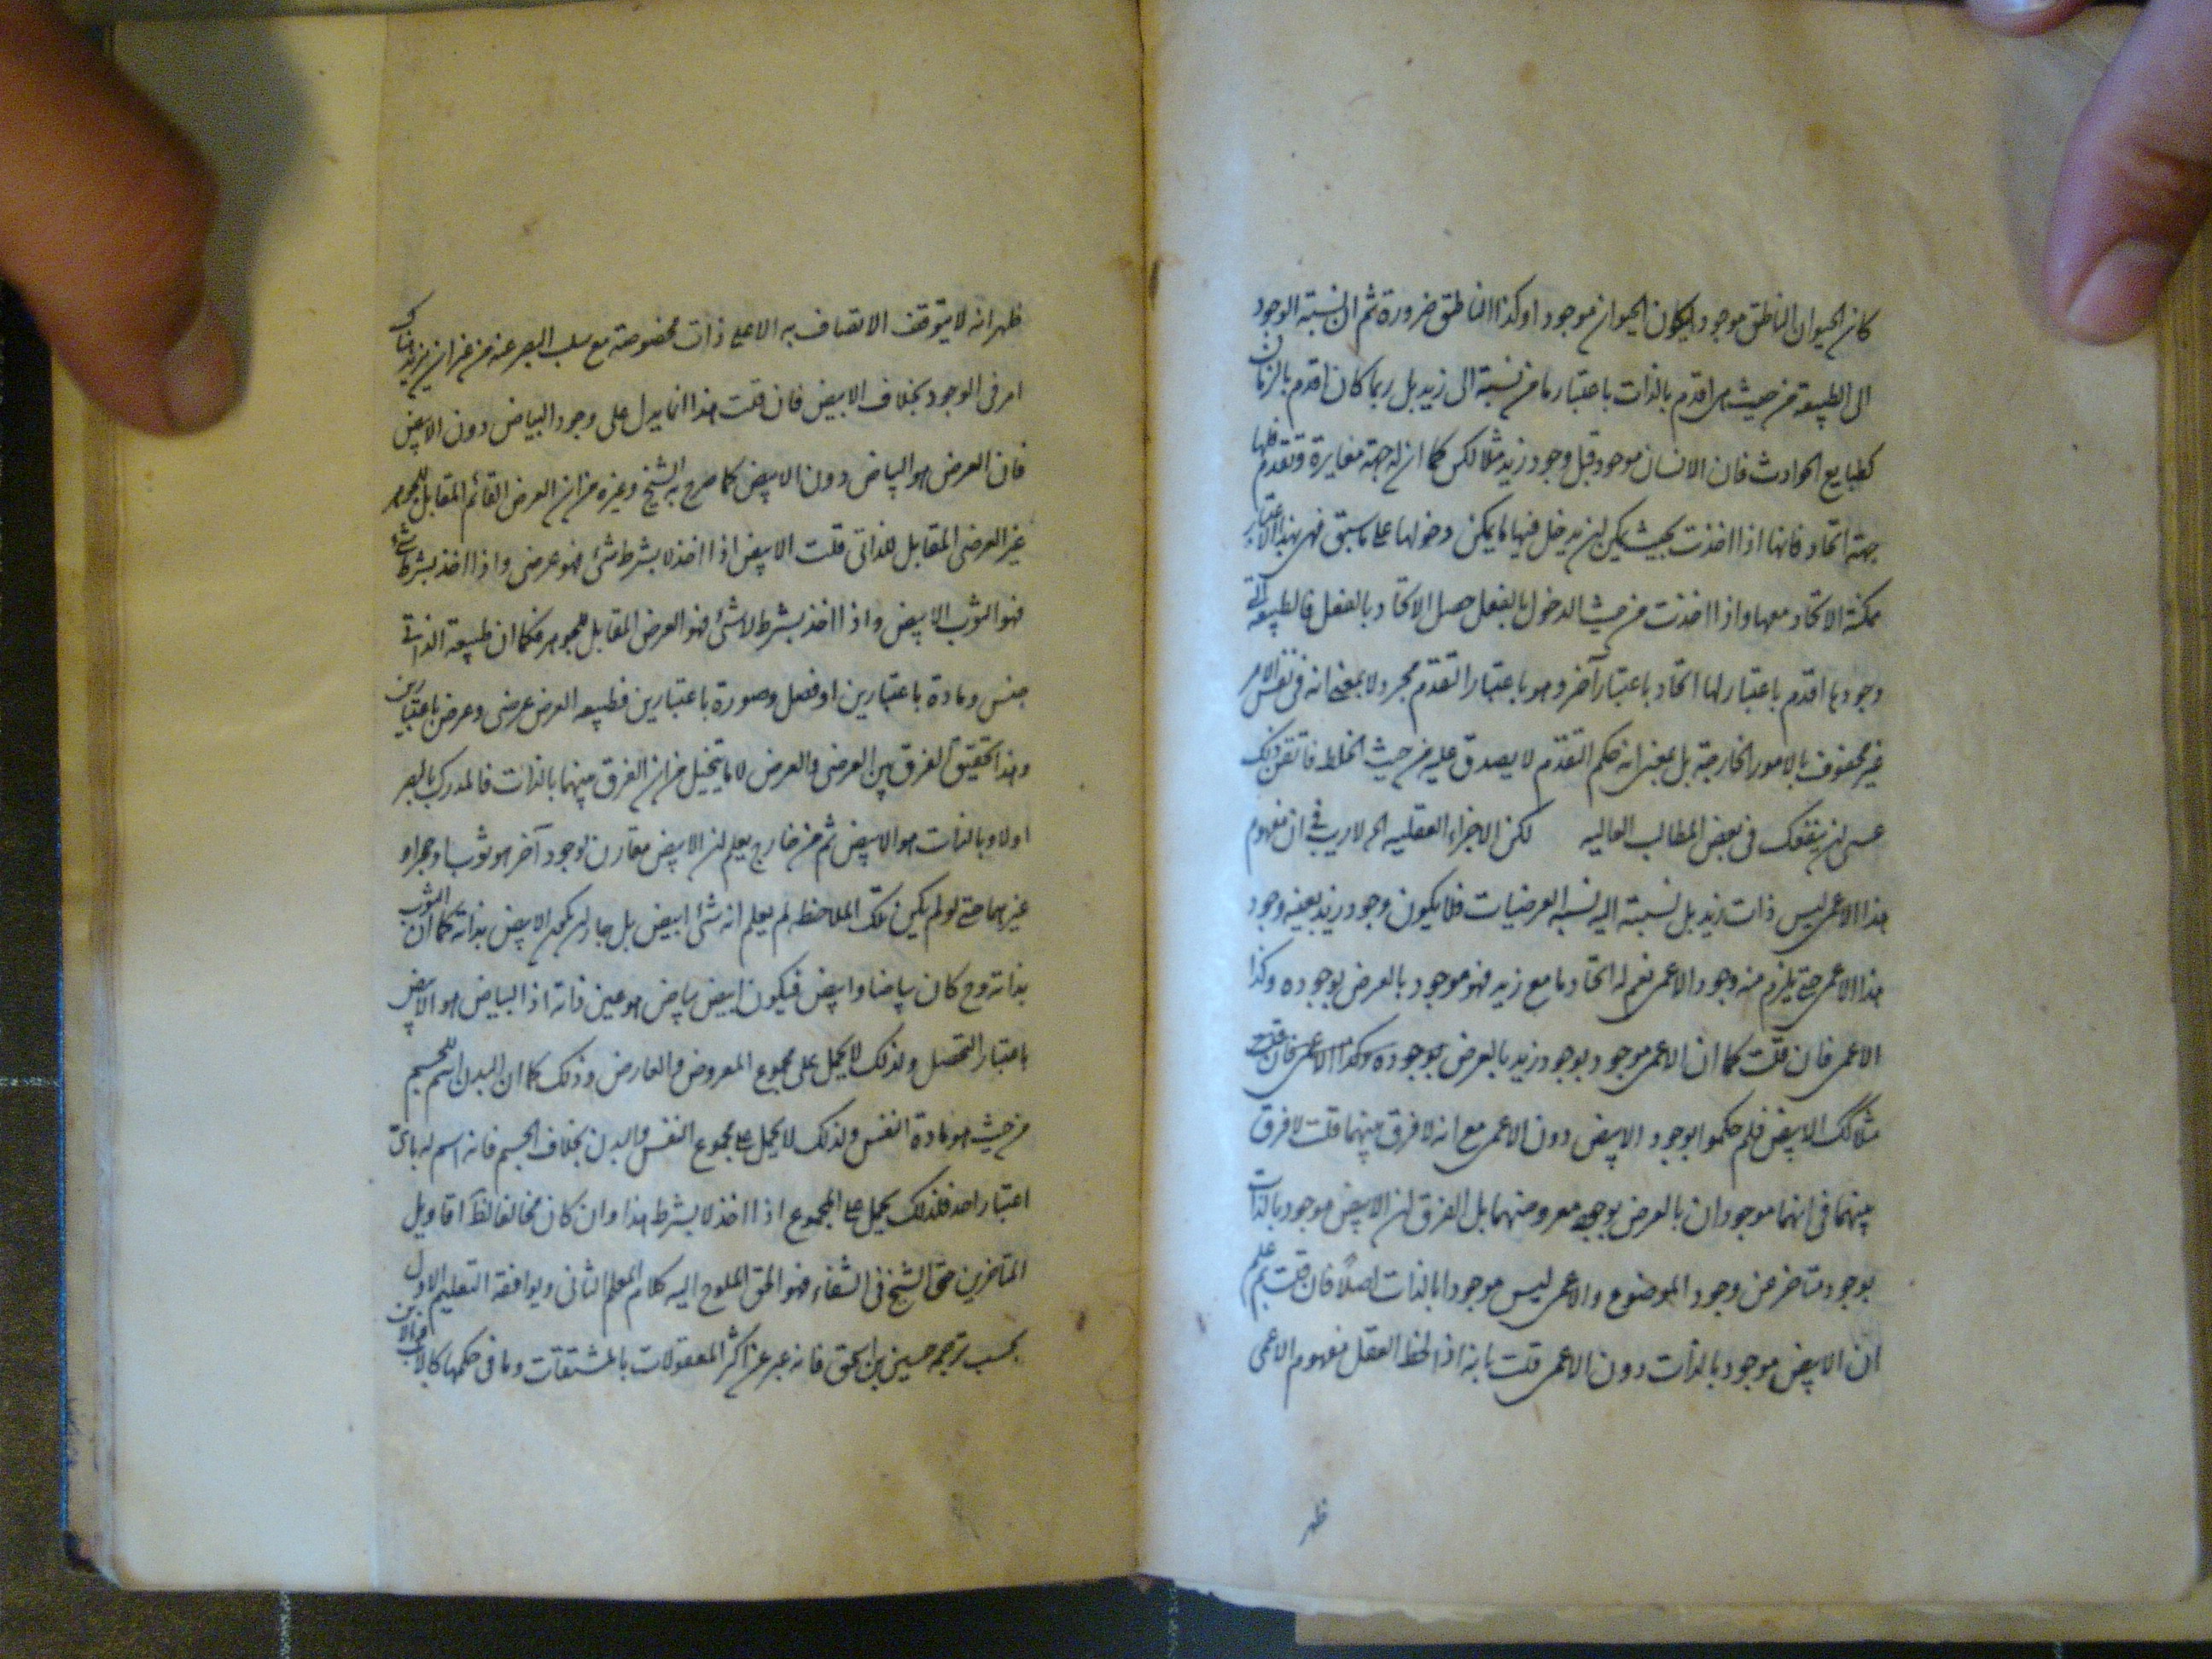 كان الحيوان الناطق موجودا يكون الحيوان موجودا وكذا الناطق ضرورة ثم ان نسبة الوجود
الى الطبيعة من حيث هي اقدم بالذات باعتبار ما من نسبة الى زيد بل ربما كان اقدم بالزمان
كطبايع الحوادث فان الانسان موجود قبل وجود زيد مثلا لكن كما ان له جهة مغايرة وتقدم فلها
جهة اتحاد فانها اذا اخذت بحيث يمكن ان يدخل فيها ما يمكن دخولها على ما سبق فهي بهذا الاعتبار
ممكنة الاتحاد معها واذا اخذت من حيث الدخول بالفعل حصل الاتحاد بالفعل فالطبيعة التي
وجودها اقدم باعتبار لها اتحاد باعتبار آخر وهو باعتبار التقدم مجرد لا بمعنى انه في نفس الامر
غير محفوف بالامور الخارجة بل بمعنى انه حكم التقدم لا يصدق عليه من حيث الخلط فاتقن ذلك
عسى ان ينفعك في بعض المطالب العاليه لكن الاجزاء العقليه الخ لا ريب في ان مفهوم
هذا الاعمى ليس ذات زيد بل نسبته اليه نسبة العرضيات فلا يكون وجود زيد بعينه وجود
هذا الاعمى حتى يلزم منه وجود الاعمى نعم له اتحاد ما مع زيد فهو موجود بالعرض بوجوده وكذا
الاعمى فان قلت كما ان الاعمى موجود بوجود زيد بالعرض بوجوده وكذا الاعمى فان قلت
كذلك الابيض فلم حكموا بوجود الابيض دون الاعمى مع انه لا فرق بينهما قلت لا فرق
بينهما في انهما موجودان بالعرض بوجود معروضهما بل الفرق ان الابيض موجود بالذات
بوجود متاخر عن وجود الموضوع والاعمى ليس موجودا بالذات اصلا فان قلت بم علم
ان الابيض موجود بالذات دون الاعمى قلت بانه اذا لاحظ العقل مفهوم الاعمى
ظهر
ظهر انه لا يتوقف الاتصاف به الا على ذات مخصوصة مع سلب البصر عنه من غير ان يزيد هناك
امر في الوجود بخلاف الابيض فان قلت هذا انما يدل على وجود البياض دون الابيض
فان العرض هو البياض دون الابيض كما صرح به الشيخ وغيره من ان العرض القائم المقابل للجوهر
غير العرضي المقابل للذاتي قلت الابيض اذا اخذ لا بشرط شئ فهو عرضي واذا اخذ بشرط شئ
فهو الثوب الابيض واذا اخذ بشرط لا شئ فهو العرض المقابل للجوهر فكما ان طبيعة الذاتي
جنس ومادة باعتبارين او فصل وصورة باعتبارين فطبيعة العرض عرضي وعرض باعتبارين
وهذا تحقيق الفرق بين العرضي والعرض لا ما يتخيل من ان الفرق بينهما بالذات فالمدرك بالبصر
اولا وبالذات هو الابيض ثم من خارج يعلم ان الابيض مقارن لوجود آخر هو ثوب او حجر او
غيرهما حتى لو لم يكن تلك الملاحظه لم يعلم انه شئ ابيض بل جاز ان يكون الابيض بذاته كما ان الثوب
بذاته وح كان بياضا وابيض فيكون ابيض بياض هو عين ذاته اذ البياض هو الابيض
باعتبار التحصل ولذلك لا يحمل على مجموع المعروض والعارض وذلك كما ان البدن اسم للجسم
من حيث هو مادة النفس ولذلك لا يحمل على مجموع النفس والبدن بخلاف الجسم فانه اسم له باى
اعتبار اخذ فلذلك يحمل على المجموع اذا اخذ لا بشرط هذا وان كان مخالفا لظ اقاويل
المتاخرين حتى الشيخ في الشفاء فهو الحق الملوح اليه كلام المعلم الثاني ويوافقه التعليم الاول
بحسب ترجمة حسين بن اسحق فانه عبر عن اكثر المعقولات بالمشتقات وما في حكمها كالاب والابن